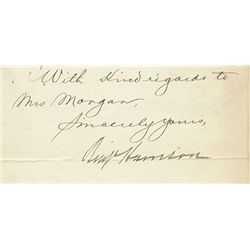 With kind regards to
Mrs Morgan,
Sincerely yours,
Benj Harrison